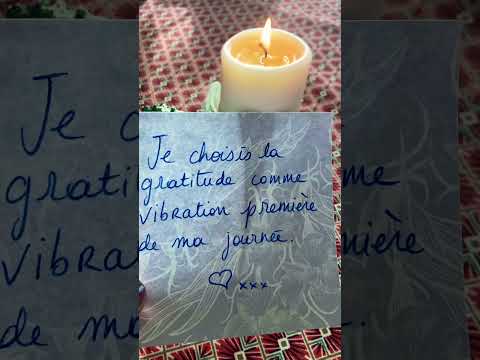 Je choisis la
gratitude comme
vibration première
de ma journée.
♡ xxx